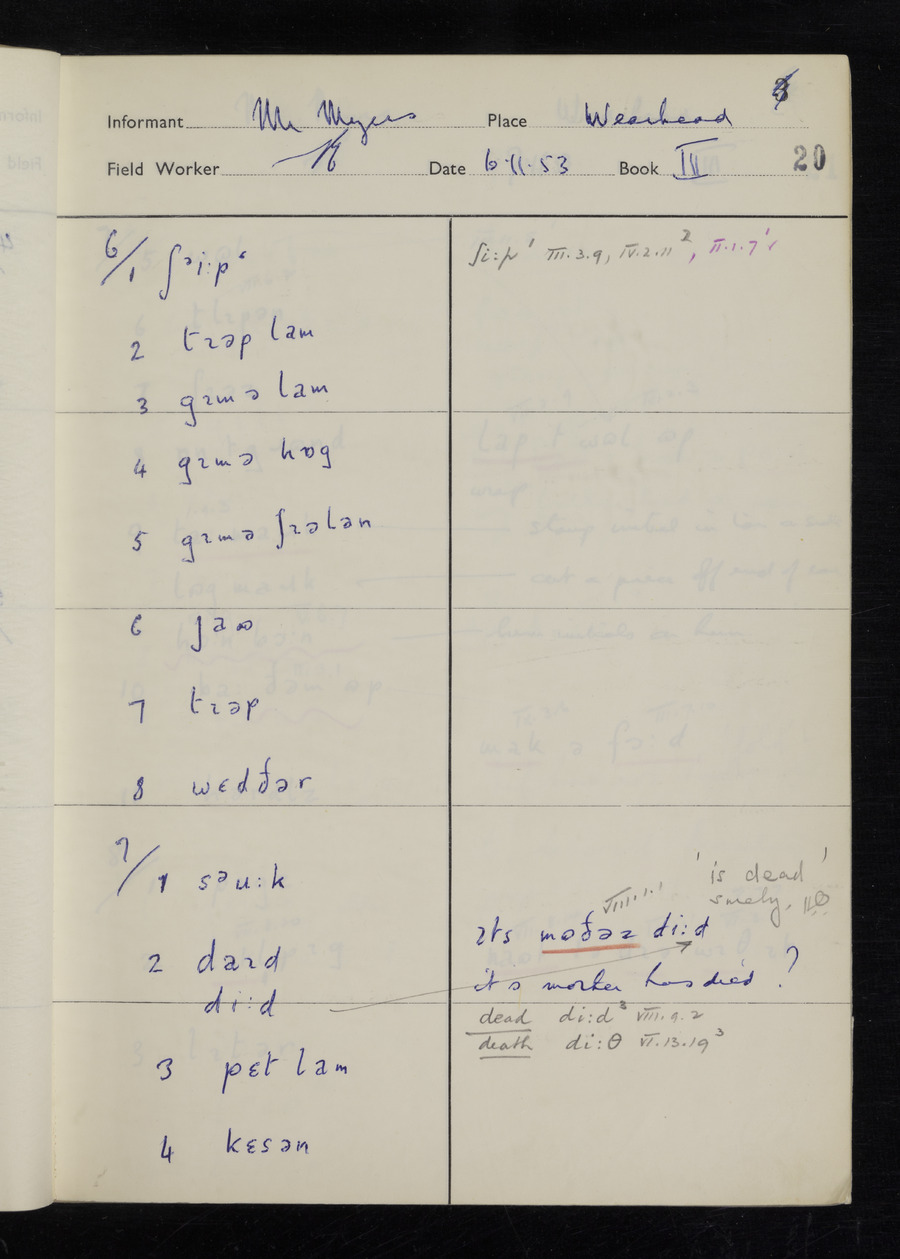 Informant Mr Myers Place Wearhead
Field Worker Date 6·11·53 Book III 20
6/1 ʃᵊi:pˈ
ʃi:pˈ III.3.9, IV.2.11², II.1.7ˈ
2 tɪəp lam
3 gɪmə lam
4 gɪmə hɒg
5 gɪmə ʃɪələn
6
7 tɪəp
8 wɛdðər
7/1 sᵊu:k
'is dead'
surely.
VIII.1.1
ɪts mɒðəɪ di:d
2 daɪd
it's mother has died ?
di:d
dead di:d³ VIII.9.2
death di:θ VI.13.19³
3 pɛt lam
4 kɛsən